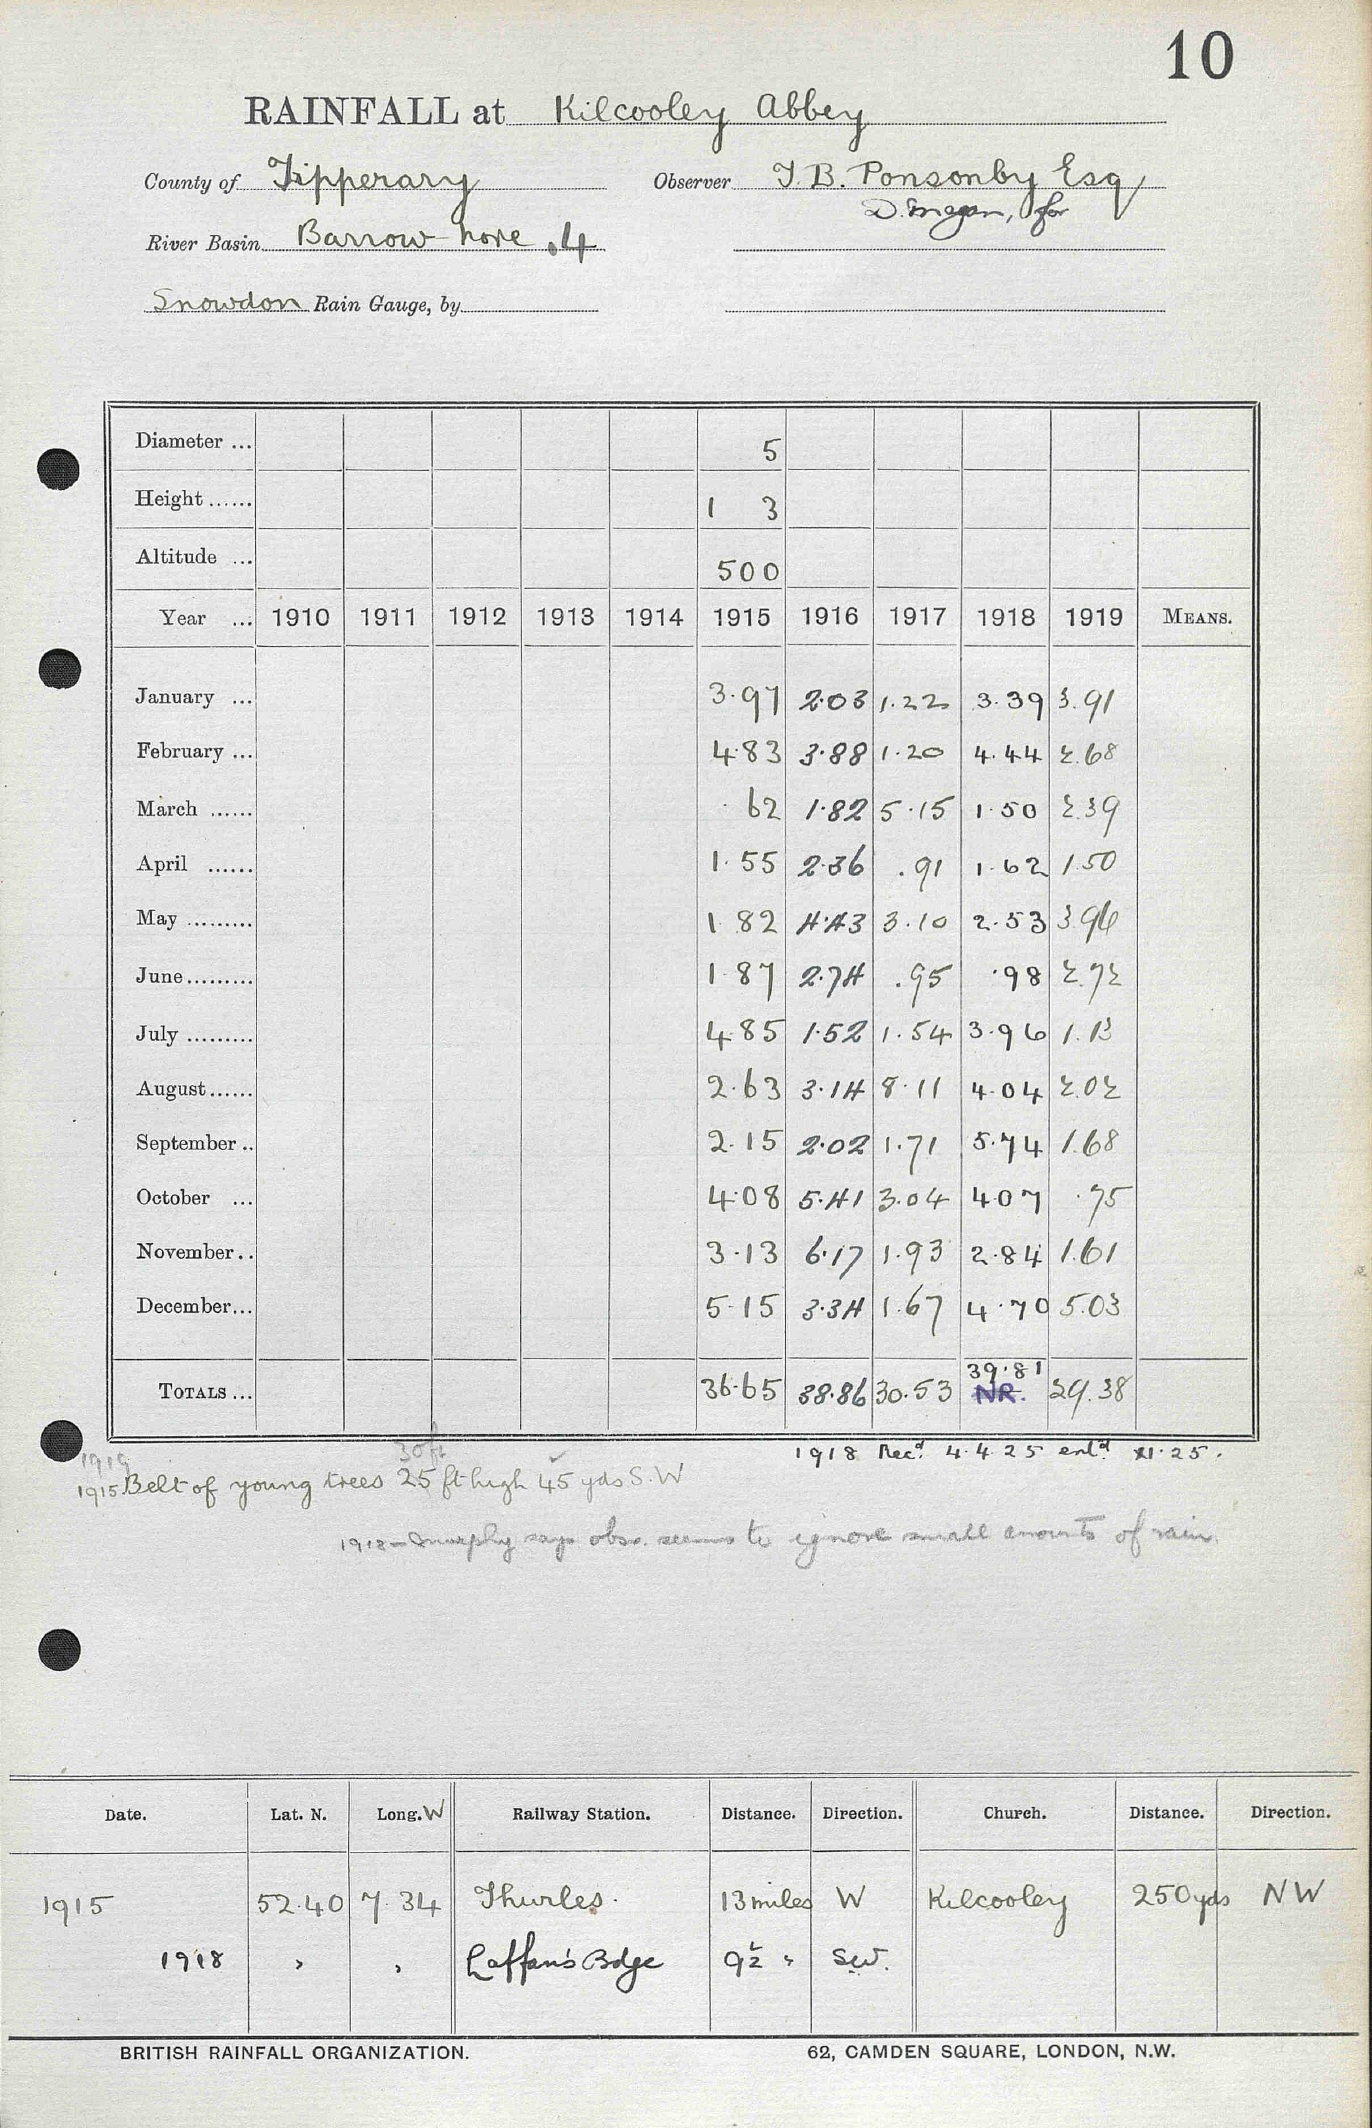 10
RAINFALL at Kilcooley Abbey
County of Tipperary Observer T. B. Ponsonby Esq
D. Megan, for
River Basin Barrow-Nore .4
Snowdon Rain Gauge, by
Diameter ... 5
Height ...... 1 3
Altitude ... 500
Year ... 1910 1911 1912 1913 1914 1915 1916 1917 1918 1919 MEANS.
January ... 3.97 2.03 1.22 3.39 3.91
February ... 4.83 3.88 1.20 4.44 2.68
March ...... .62 1.82 5.15 1.50 2.39
April ...... 1.55 2.36 .91 1.62 1.50
May ......... 1.82 4.43 3.10 2.53 3.96
June ......... 1.87 2.74 .95 .98 2.72
July ......... 4.85 1.52 1.54 3.96 1.13
August ...... 2.63 3.14 8.11 4.04 2.02
September .. 2.15 2.02 1.71 5.74 1.68
October ... 4.08 5.41 3.04 4.07 .75
November .. 3.13 6.17 1.93 2.84 1.61
December ... 5.15 3.34 1.67 4.70 5.03
39.81
TOTALS ... 36.65 38.86 30.53 NR. 29.38
1918 Recd. 4.4.25 entd. XI.25.
1919 30ft
1915 Belt of young trees 25 ft high 45 yds S.W
1918 - Murphy says obsr. seems to ignore small amounts of rain.
Date. Lat. N. Long. W Railway Station. Distance. Direction. Church. Distance. Direction.
1915 52.40 7.34 Thurles. 13 miles W Kilcooley 250 yds NW
1918 " " Laffan's Bdge 9½ " SW.
BRITISH RAINFALL ORGANIZATION. 62, CAMDEN SQUARE, LONDON, N.W.